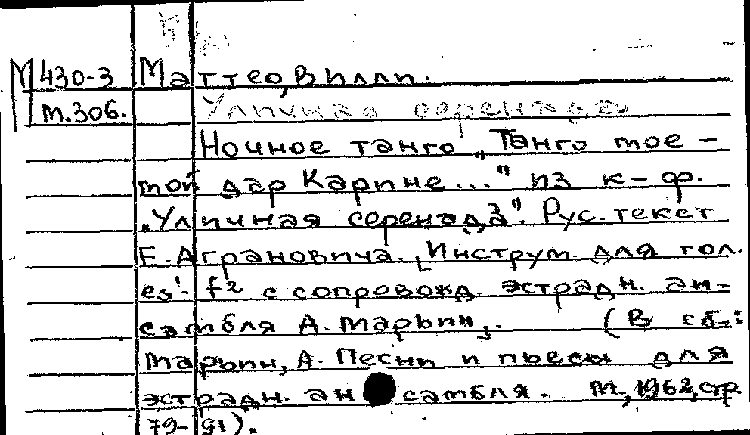 М 430-3 Маттео, Вилли.
т.306. Уличная серенада
Ночное танго „Танго мое –
мой дар Карине..." из к-ф.
„Уличная серенада". Рус. текст
Е. Аграновича. [Инструм. для гол.
es'- f2 с сопровожд. эстрадн. ан-
самбля А. Марьин]. (В сб.:
Марьин, А. Песни и пьесы для
эстрадн. ансамбля. М., 1962, стр.
79-91).